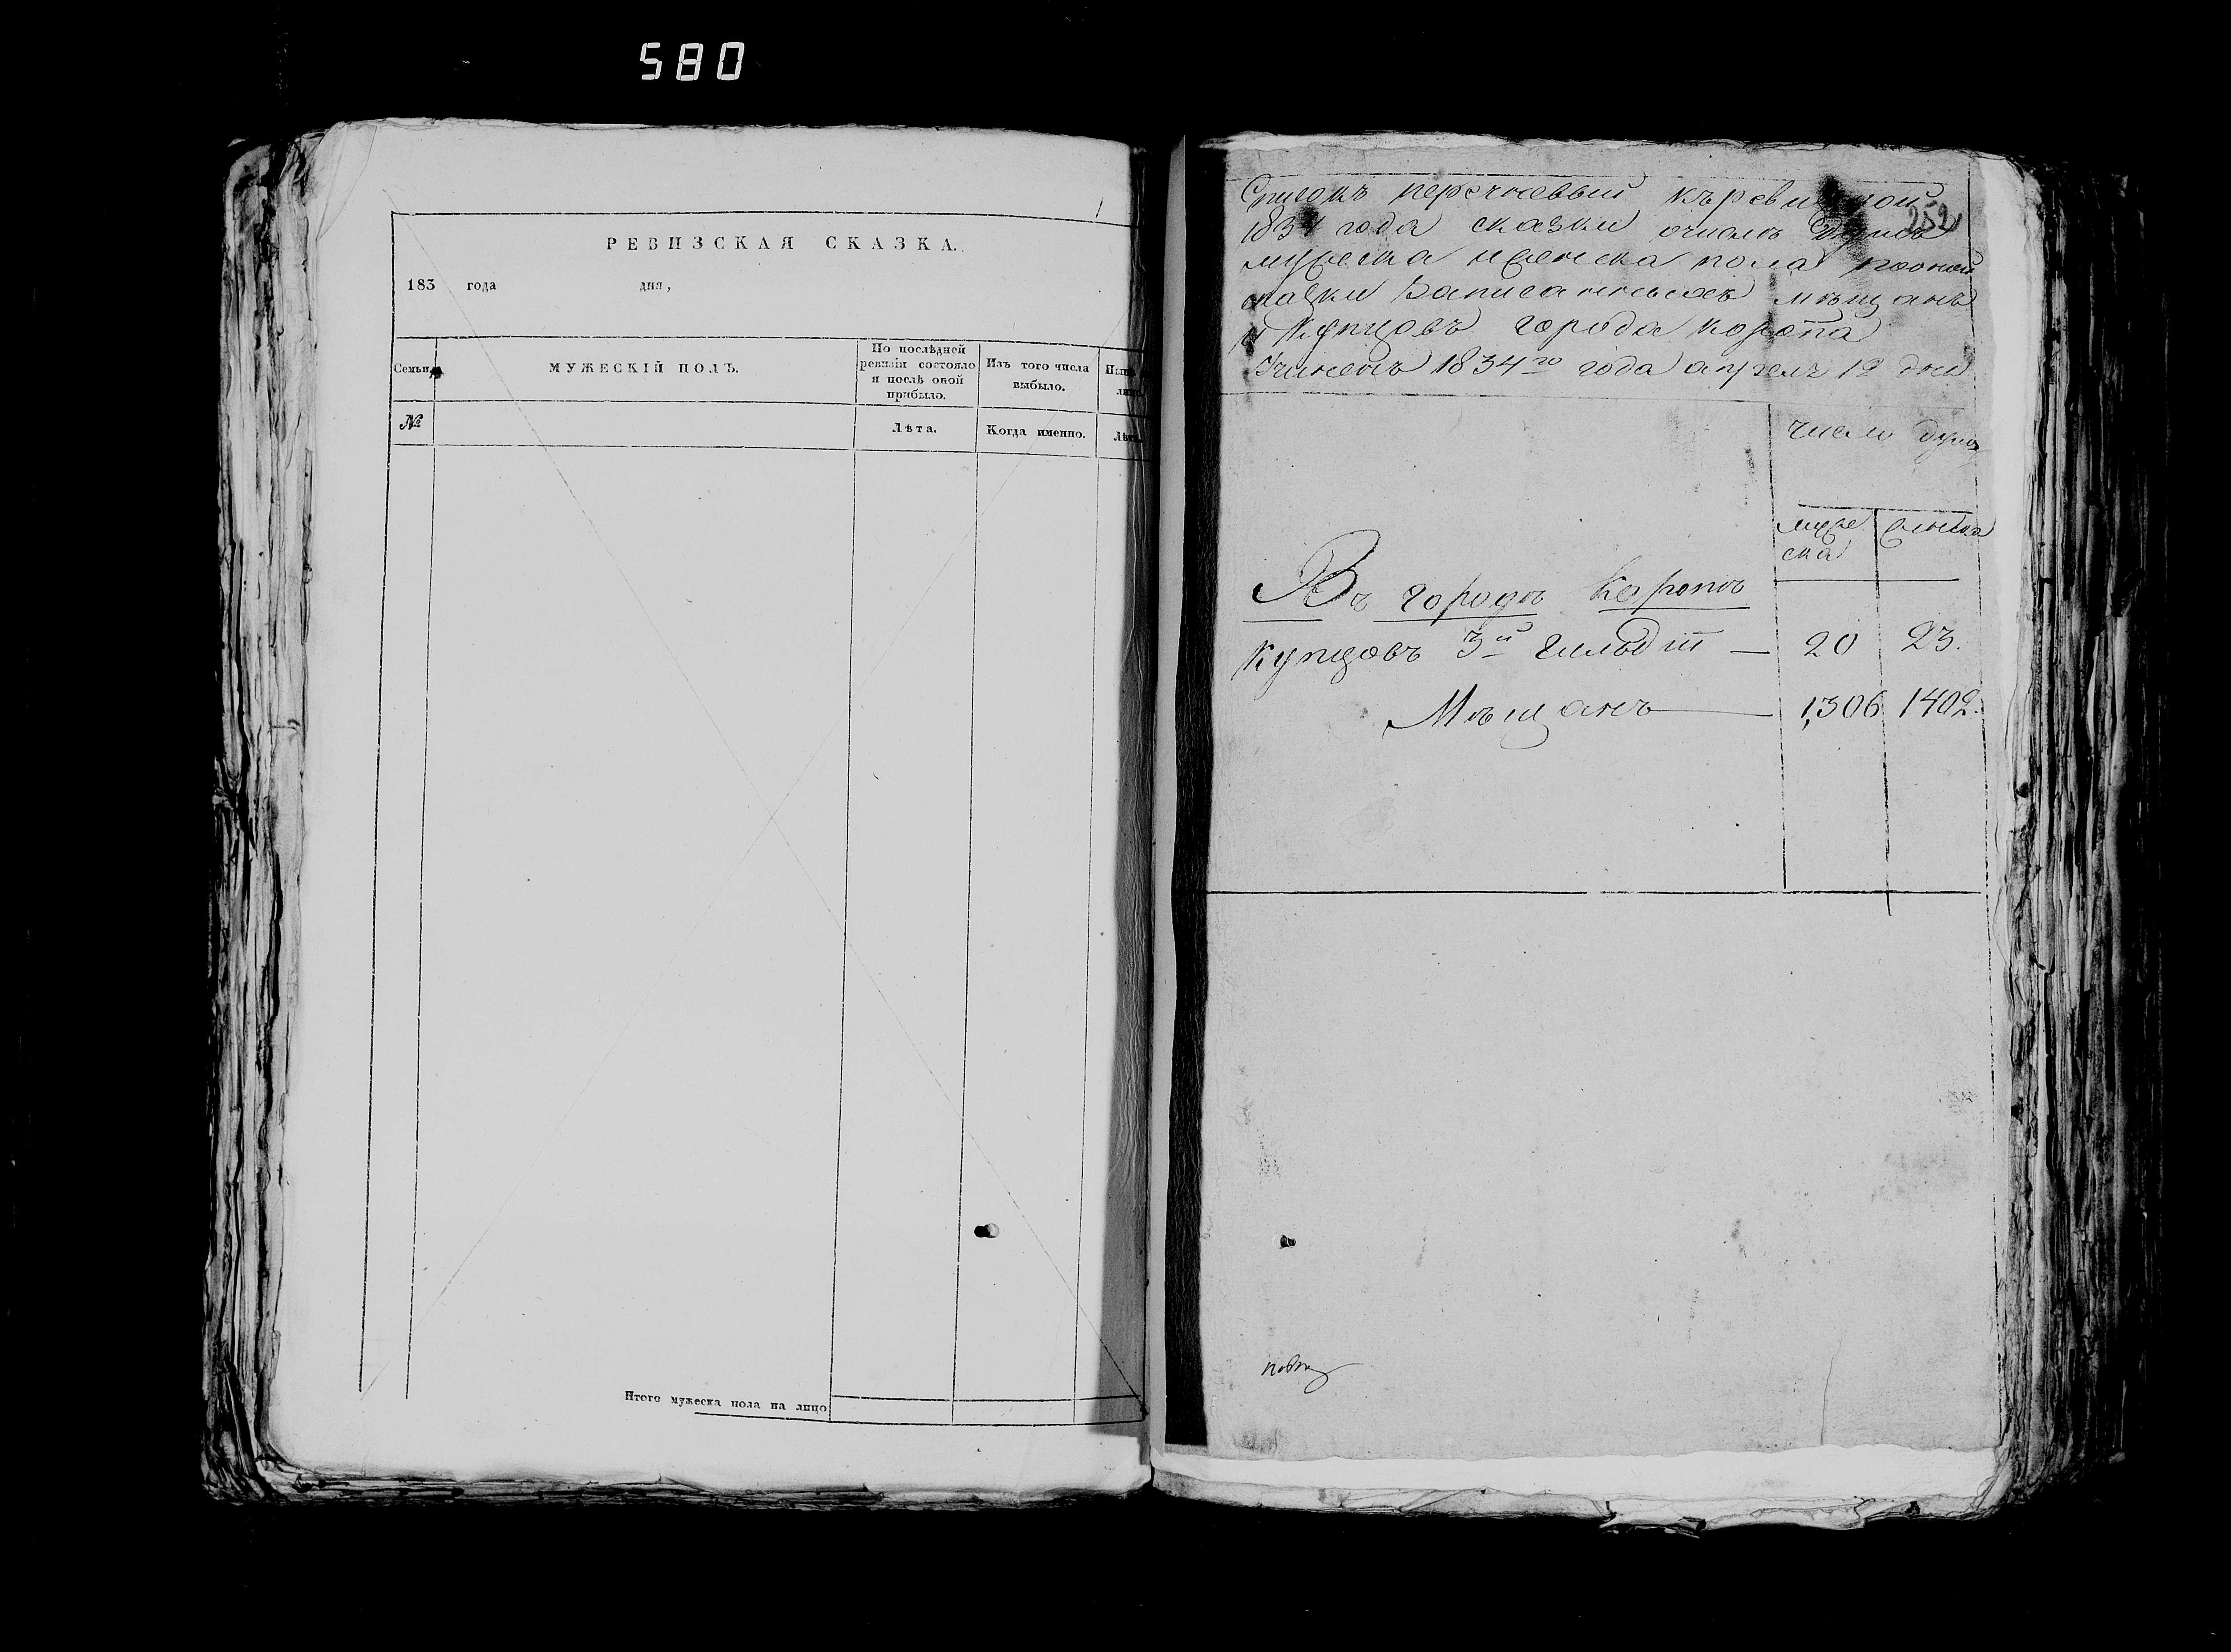 580
РЕВИЗСКАЯ СКАЗКА.
183 года дня,
Семьи
МУЖЕСКІЙ ПОЛЪ.
По послѣдней
ревизіи состояло
и послѣ оной
прибыло.
Изъ того числа
выбыло.
№
Лѣта.
Когда именно.
Итого мужеска пола на лицо
252
Списокъ перечневый къ ревизской
1834 года сказки о числѣ душъ
мужеска и женска пола по оной
сказки записанныхъ мѣщанъ
и Купцовъ города Коропа
Учиненъ 1834го года апреля 12 дня
число душъ
муже
ска
женска
Въ городѣ Коропѣ
Купцовъ 3й гильдіи — 20 23.
Мѣщанъ — 1,306 1402.